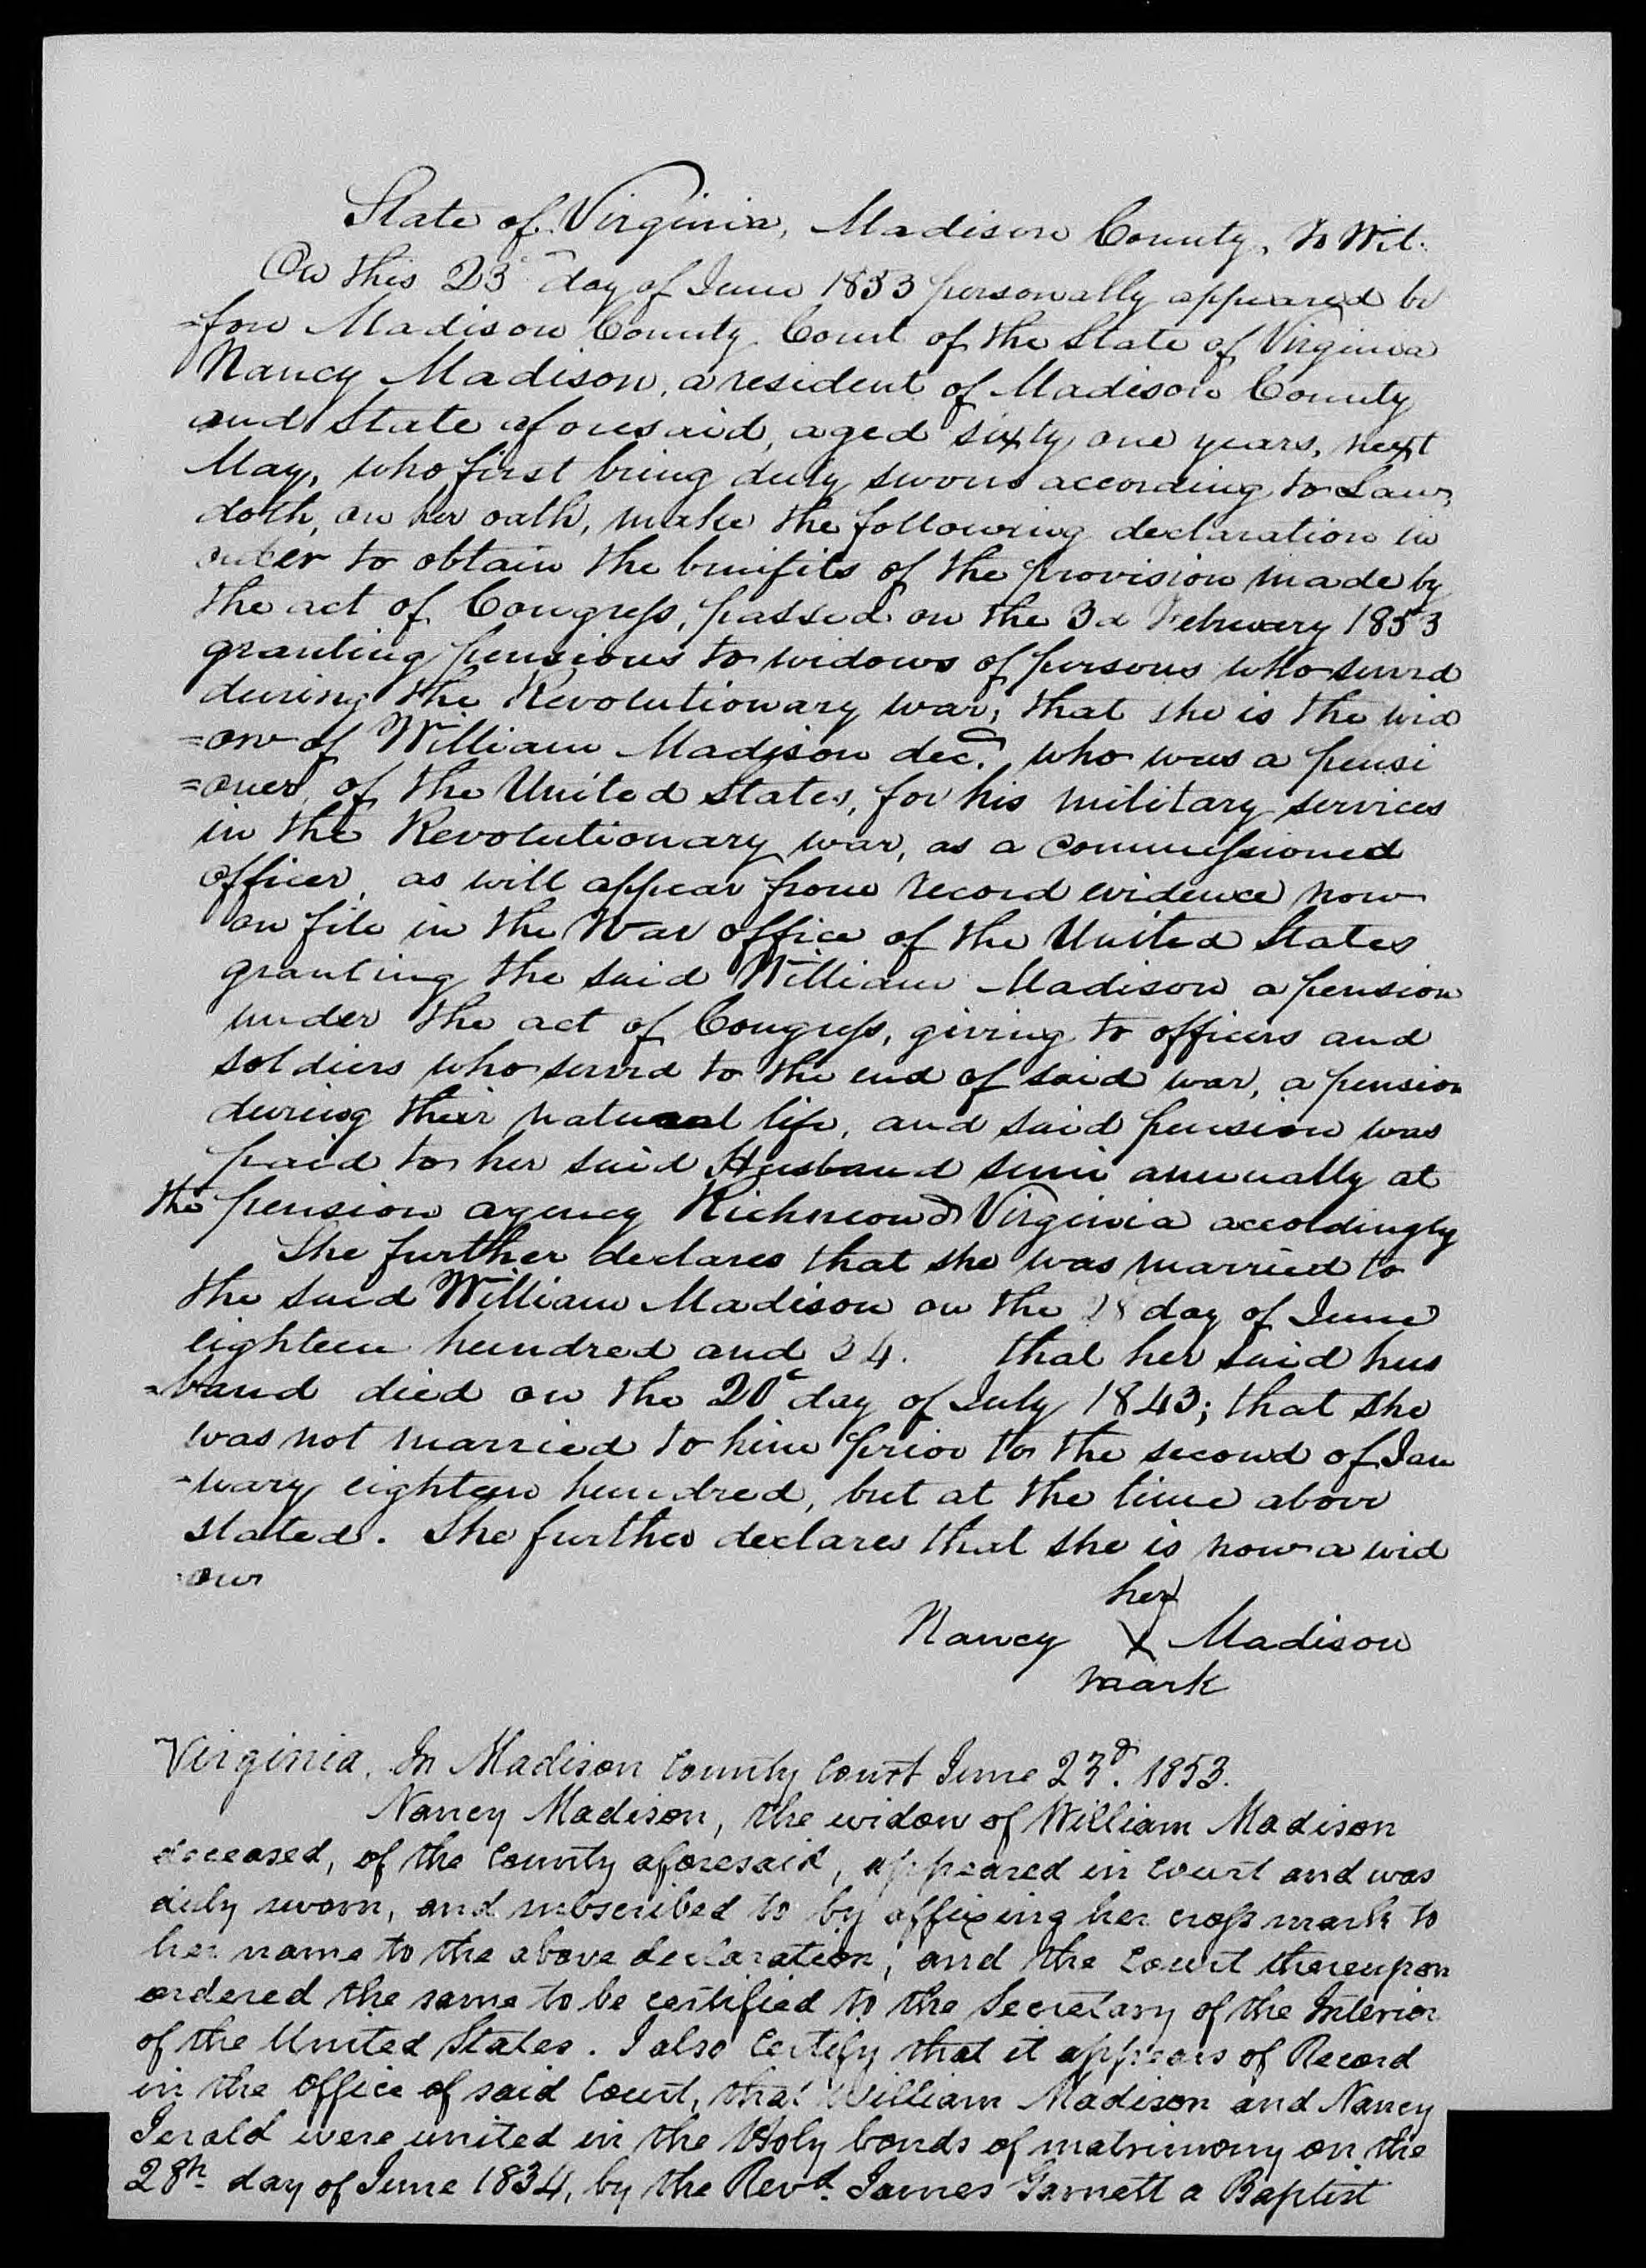 State of Virginia, Madison County, to Wit.
On this 23d day of June 1853 personally appeared be
=fore Madison County Court of the State of Virginia
Nancy Madison, a resident of Madison County
and State aforesaid, aged sixty one years, next
May, who first being duly sworn according to Law,
doth, on her oath, make the following declaration in
order to obtain the benifits of the provision made by
the act of Congress, passed on the 3d February 1853
granting pensions to widows of persons who served
during the Revolutionary war; that she is the wid
=ow of William Madison decd. who was a pensi
=oner, of the United States, for his military services
in the Revolutionary war, as a commissioned
officer, as will appear from record evidence now
on file in the War office of the United States
granting the said William Madison a pension
under the act of Congress, giving to officers and
soldiers who served to the end of said war, a pension
during their natural life, and said pension was
paid to her said Husband semi annually at
the pension agency Richmond Virginia accoldingly
She further declares that she was married to
the said William Madison on the 28 day of June
eighteen hundred and 34. that her said hus
=band died on the 20e day of July 1843; that she
was not married to him prior to the second of Jan
-uary eighteen hundred, but at the time above
stated. She further declares that she is now a wid
=ow
her
Nancy X Madison
mark
Virginia, In Madison County Court June 23d. 1853.
Nancy Madison, the widow of William Madison
deceased, of the County aforesaid, appeared in Court and was
duly sworn, and subscribed to by affixing her cross mark to
her name to the above declaration; and the Court thereupon
ordered the same to be certified to the Secretary of the Interior
of the United States. I also certify that it appears of Record
in the office of said Court, that William Madison and Nancy
Jerald were united in the Holy bonds of matrimony on the
28th day of June 1834, by the Revd. James Garnett a Baptist